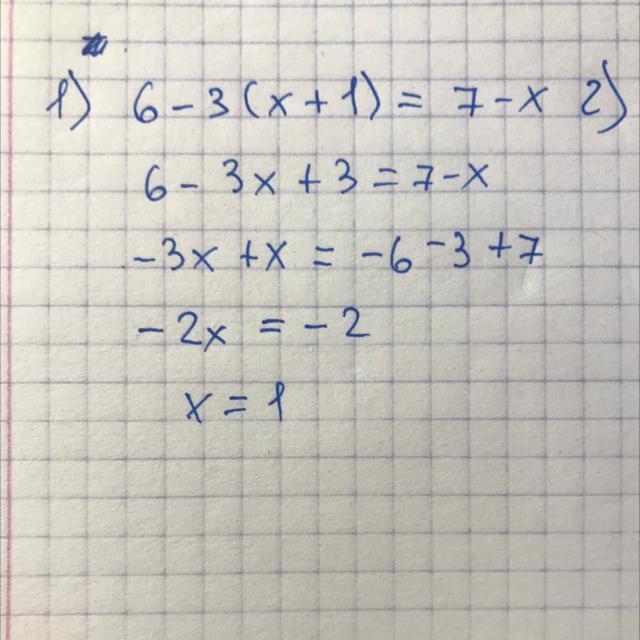 1) 6 - 3(x + 1) = 7 - x 2)
6 - 3x + 3 = 7 - x
-3x + x = -6 - 3 + 7
-2x = -2
x = 1